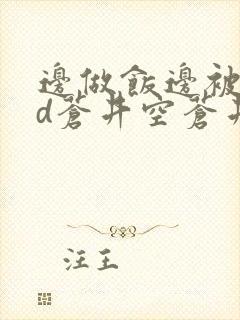 邊做飯邊被
d蒼井空蒼井
汪王